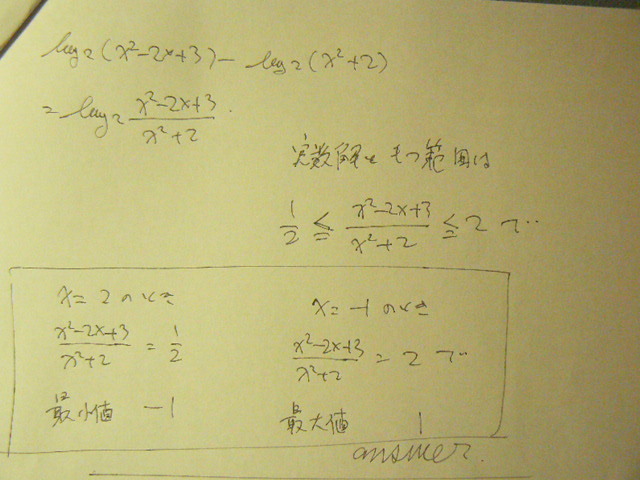 log₂(x²-2x+3) - log₂(x²+2)
= log₂ (x²-2x+3)/(x²+2).
実数解をもつ範囲は
1/2 ≦ (x²-2x+3)/(x²+2) ≦ 2 で…
x = 2 のとき
(x²-2x+3)/(x²+2) = 1/2
最小値 -1
x = -1 のとき
(x²-2x+3)/(x²+2) = 2 で…
最大値 1
answer.